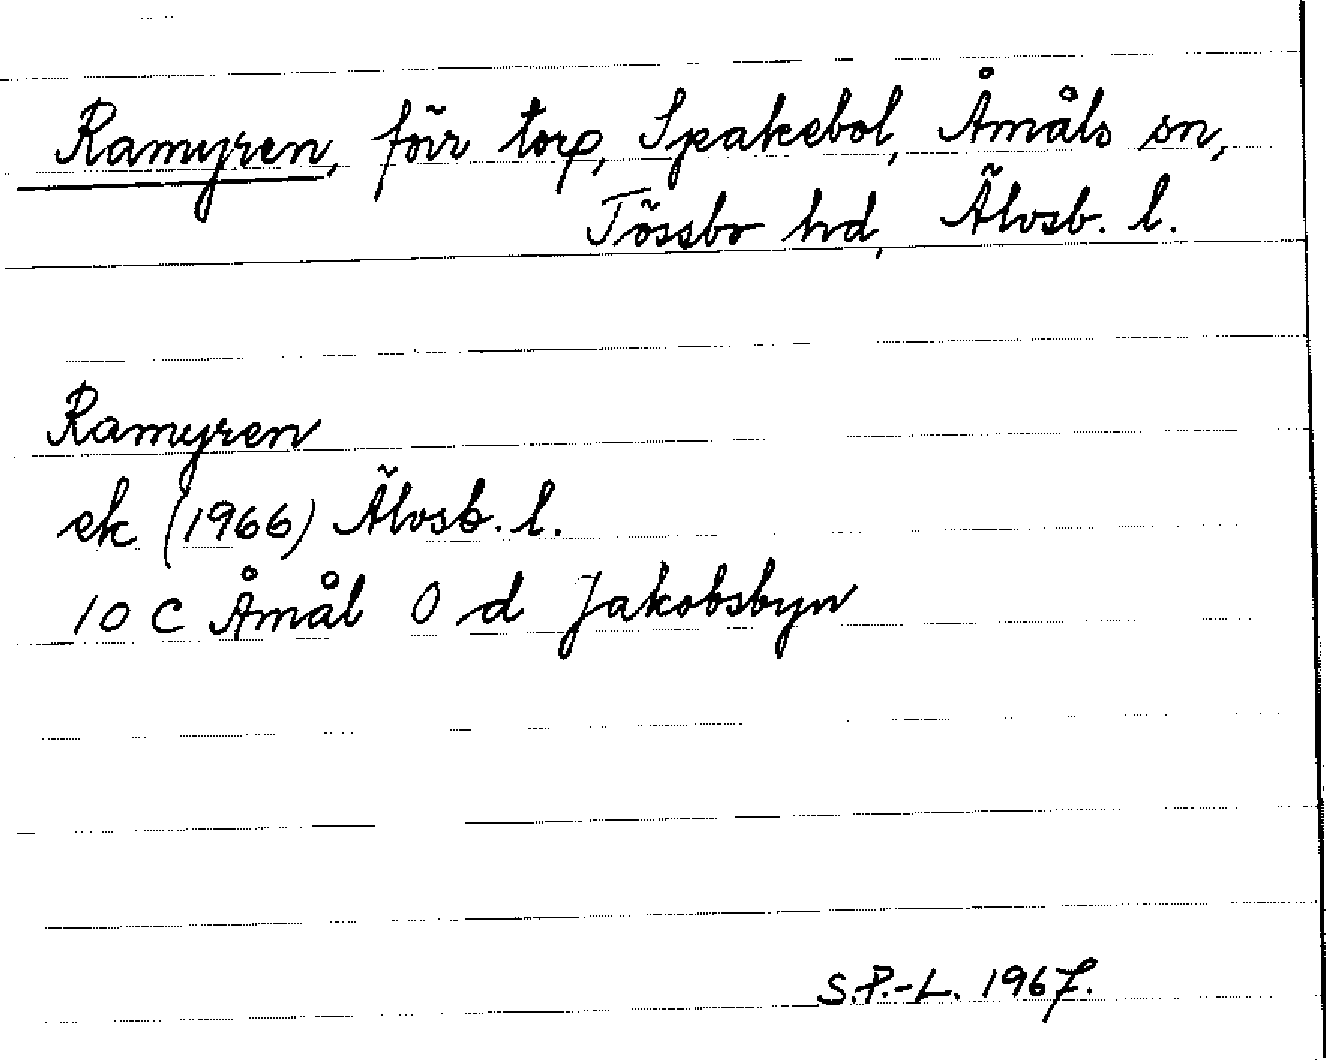 Ramyren, förr torp, Spakebol, Åmåls sn,
Tössbo hd, Älvsb. l.
Ramyren
ek (1966) Älvsb. l.
10 C Åmål 0 d Jakobsbyn
S.P.-L. 1967.